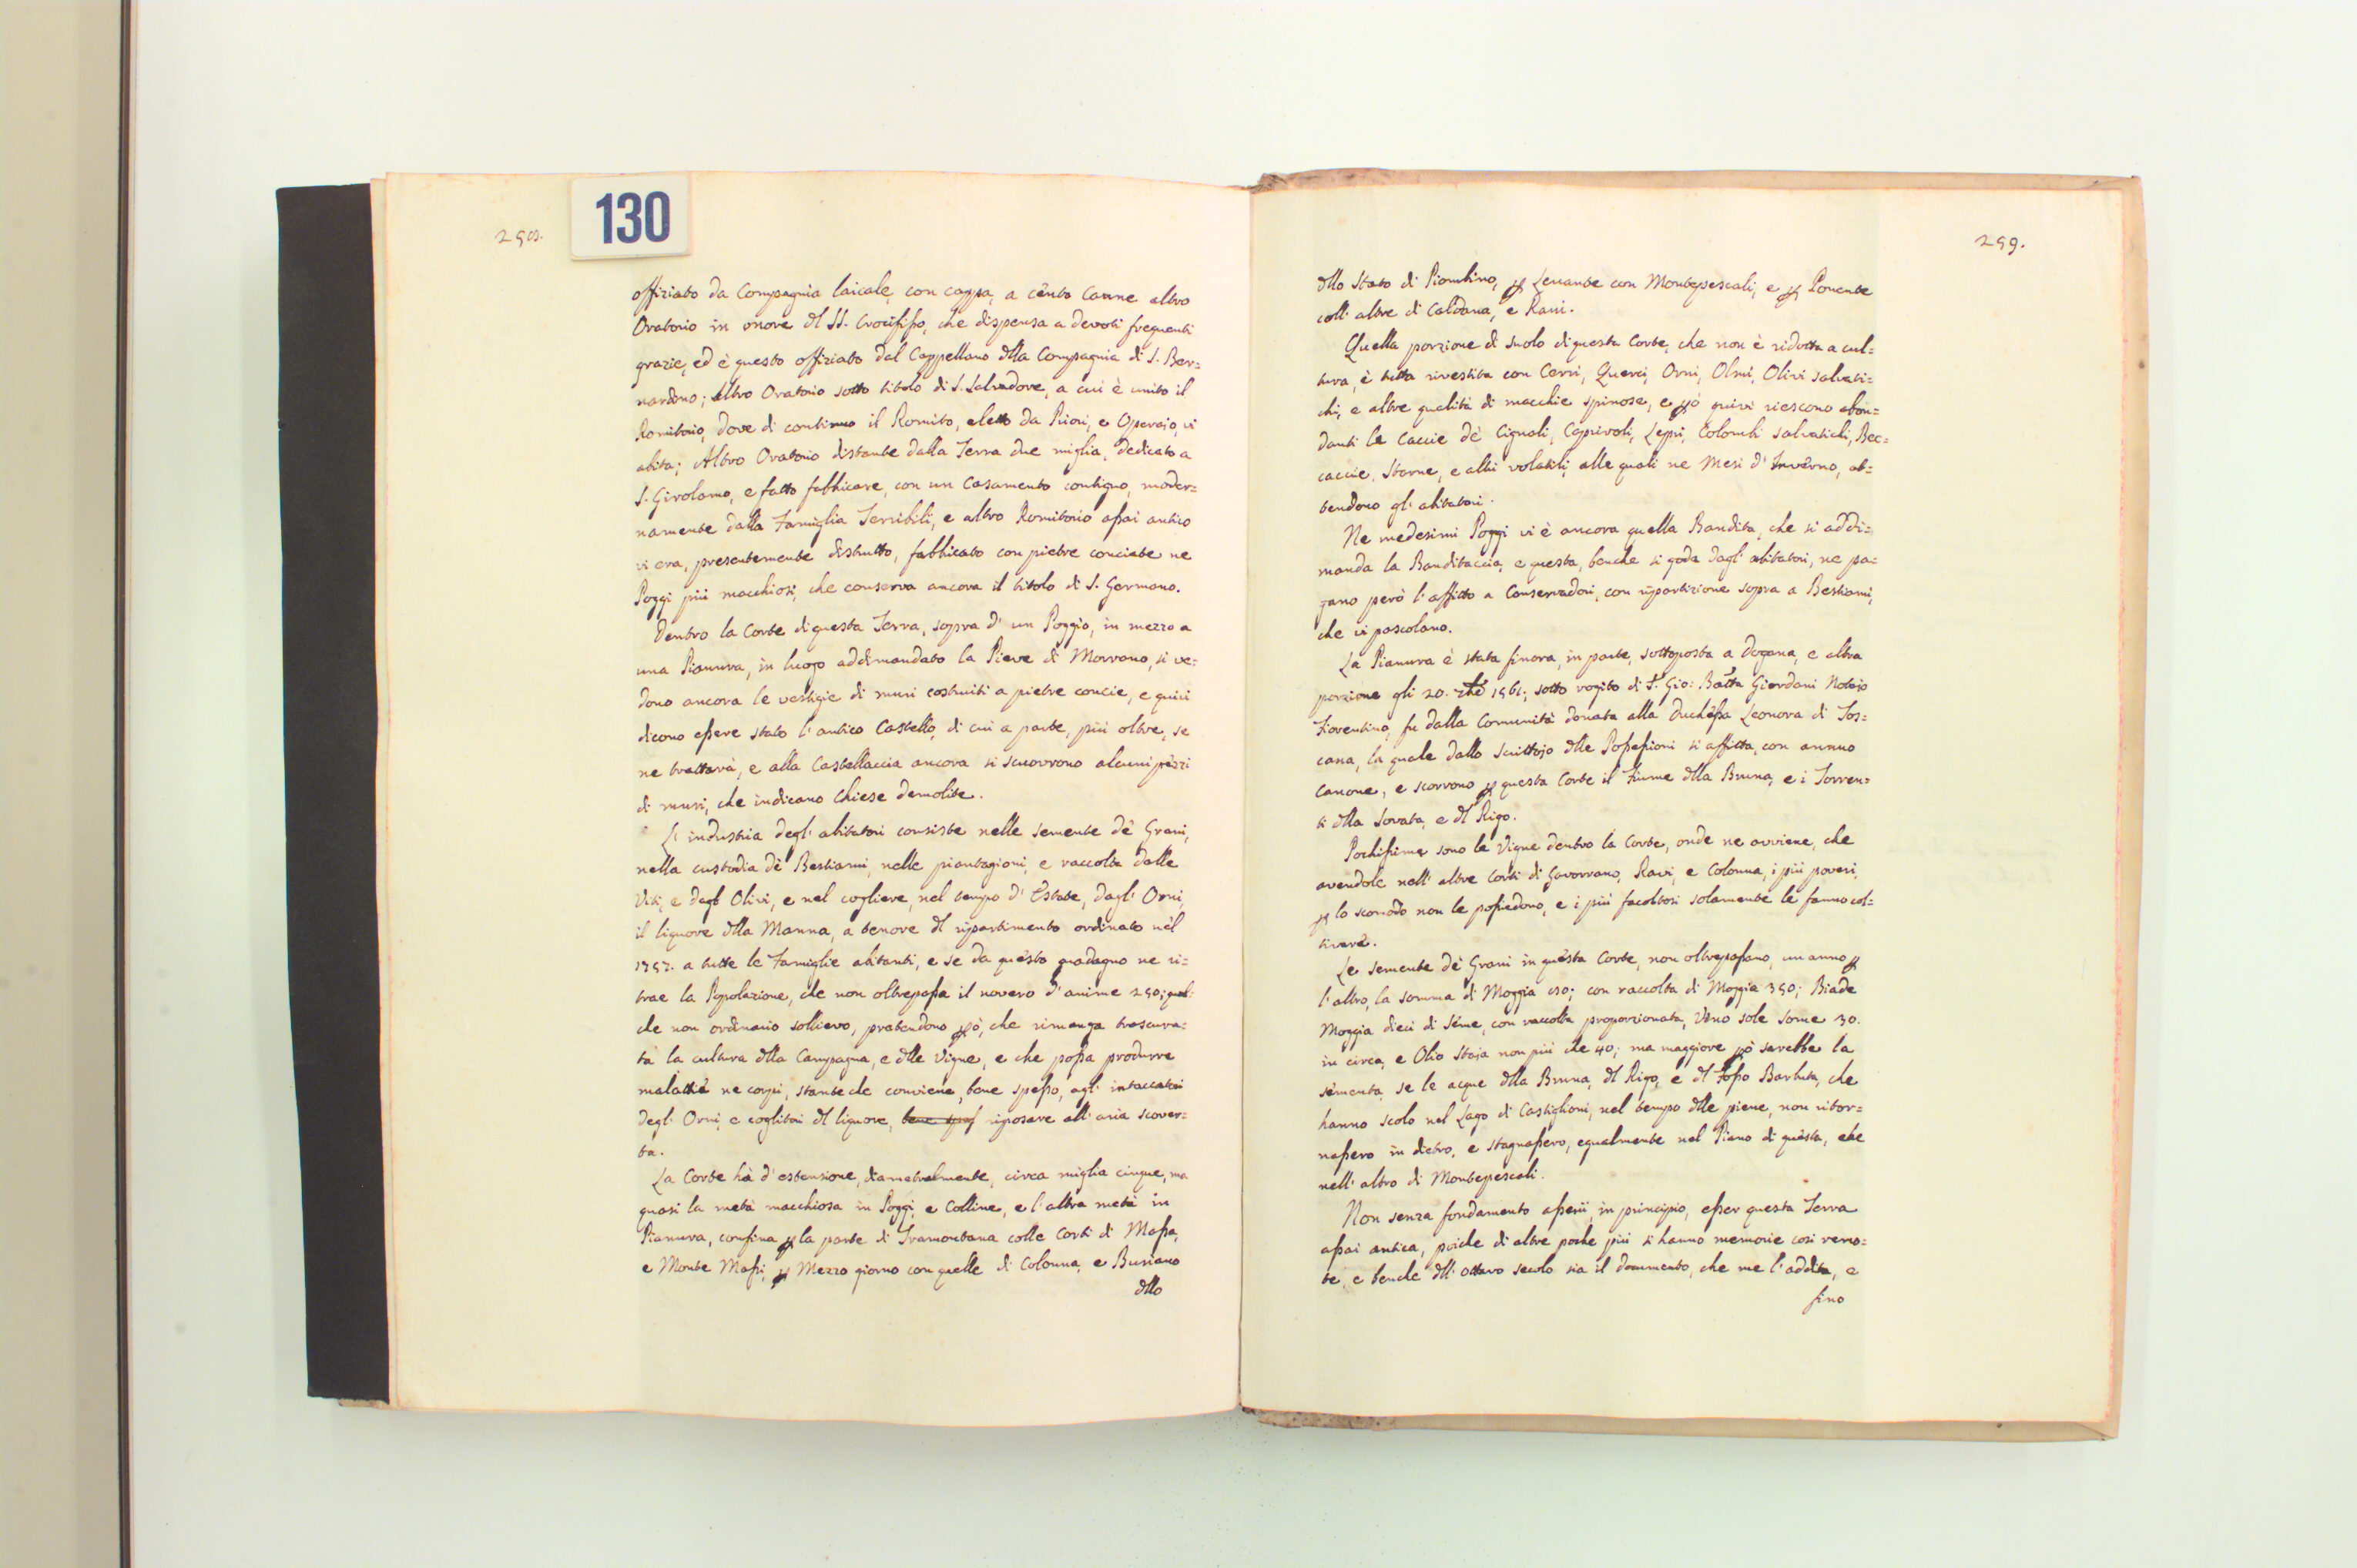 258.
130
offiziato da Compagnia laicale, con cappa, a cento Canne altro
Oratorio in onore dl SS. Crocifisso, che dispensa a devoti frequenti
grazie, ed è questo offiziato dal Cappellano dlla Compagnia di S. Ber=
nardino; altro Oratorio sotto titolo di S. Salvadore, a cui è unito il
Romitorio, dove di continuo il Romito, eletto da Priori, e Operajo, vi
abita; Altro Oratorio distante dalla Terra due miglia, dedicato a
S. Girolamo, e fatto fabbricare, con un Casamento contiguo, moder=
namente dalla Famiglia Terribili, e altro Romitorio assai antico
vi era, presentemente distrutto, fabbricato con pietre conciate ne
Poggi più macchiosi, che conserva ancora il titolo di S. Germano.
Dentro la Corte di questa Terra, sopra d' un Poggio, in mezzo a
una Pianura, in luogo addimandato la Pieve di Morrano, si ve=
dono ancora le vestigie di muri costruiti a pietre concie, e quivi
dicono essere stato l' antico Castello, di cui a parte, più oltre, se
ne tratterà, e alla Castellaccia ancora si scuorrono alcuni pezzi
di muri, che indicano Chiese demolite.
L' industria degl' abitatori consiste nelle semente dè Grani,
nella custodia dè Bestiami, nelle piantagioni, e raccolta dalle
Viti, e degl' Olivi, e nel cogliere, nel tempo d' Estate, dagl' Orni,
il liquore dlla Manna, a tenore dl ripartimento ordinato nel
1757. a tutte le Famiglie abitanti, e se da questo guadagno ne ri=
trae la Popolazione, che non oltrepassa il novero d' anime 250; qual=
che non ordinario sollievo, pretendono pò, che rimanga trascura=
ta la cultura dlla Campagna, e dlle Vigne, e che possa produrre
malattie ne corpi, stanteche conviene, bene spesso, agl' intaccatori
degl' Orni, e coglitori dl liquore, bene spess riposare all' aria scover=
ta.
La Corte hà d' estensione, diametralmente, circa miglia cinque, ma
quasi la metà macchiosa in Poggi, e Colline, e l' altra metà in
Pianura, confina p la parte di Tramontana colle Corti di Massa,
e Monte Massi, p Mezzo giorno con quelle di Colonna, e Buriano
dllo
259.
dllo Stato di Piombino, p Levante con Montepescali, e p Ponente
coll' altre di Caldana, e Ravi.
Quella porzione di suolo di questa Corte, che non è ridotta a cul=
tura, è tutta rivestita con Cerri, Querci, Orni, Olmi, Olivi salvati=
chi, e altre qualità di macchie spinose, e pò quivi riescono abon=
danti le Caccie dè Cignali, Caprivoli, Lepri, Colombi salvatichi, Bec=
caccie, Starne, e altri volatili, alle quali ne Mesi d' Inverno, at=
tendono gl' abitatori.
Ne medesimi Poggi vi è ancora quella Bandita, che si addi=
manda la Banditaccia, e questa, benche si goda dagl' abitatori, ne pa=
gano però l' affitto a Conservadori, con ripartizione sopra a Bestiami,
che vi pascolano.
La Pianura è stata finora, in parte, sottoposta a Dogana, e altra
porzione gli 20. 1561; sotto rogito di S. Gio: Batta Giordani Notajo
Fiorentino, fu dalla Comunità donata alla Duchessa Leonora di Tos=
cana, la quale dallo Scrittojo dlle Possessioni si affitta, con annuo
Canone, e scorrono p questa Corte il Fiume dlla Bruna, e i Torren=
ti dlla Sovata, e dl Rigo.
Pochissime sono le Vigne dentro la Corte, onde ne avviene, che
avendole nell' altre Corti di Gavorrano, Ravi, e Colonna, i più poveri,
p lo scomodo non le possiedono, e i più facoltosi solamente le fanno col=
tivare.
Le semente dè Grani in questa Corte, non oltrepassano, un anno p
l' altro, la somma di Moggia 80; con raccolta di Moggia 350; Biade
Moggia dieci di seme, con raccolta proporzionata, Vino sole some 30.
in circa, e Olio Staja non più che 40; ma maggiore pò sarebbe la
sementa, se le acque dlla Bruna, dl Rigo, e dl Fosso Barbuta, che
hanno scolo nel Lago di Castiglioni, nel tempo dlle piene, non ritor=
nassero in dietro, e stagnassero, egualmente nel Piano di questa, che
nell' altro di Montepescali.
Non senza fondamento asserii, in principio, esser questa Terra
assai antica, poiche di altre poche più si hanno memorie così remo=
te, e benche dll' ottavo secolo sia il documento, che me l' addita, e
fino